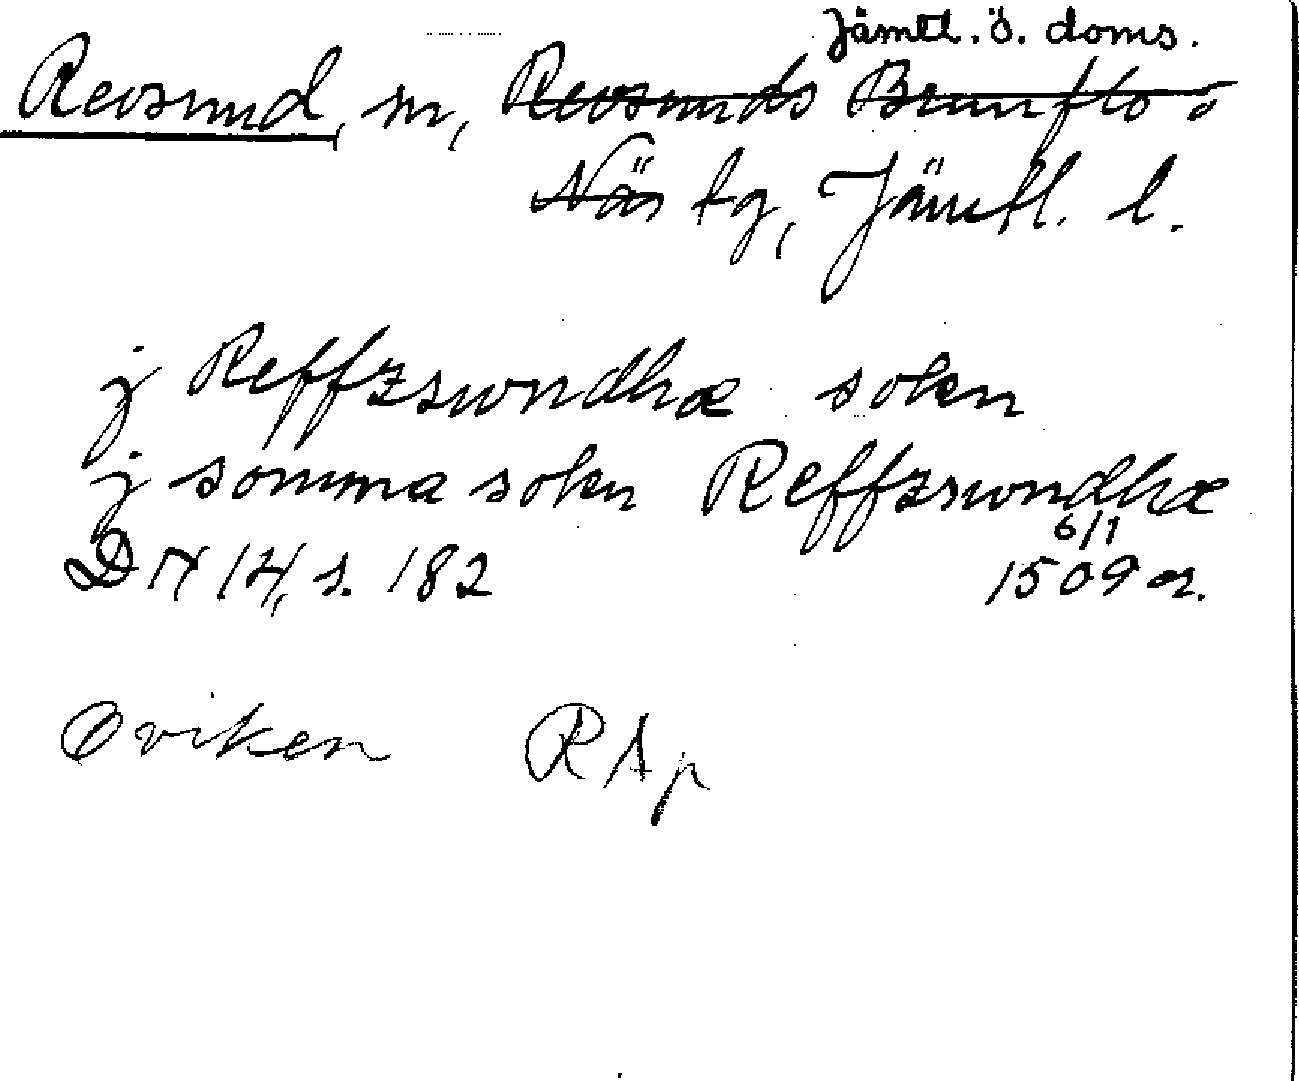 Jämtl. ö. doms.
Revsund, sn, Revsunds Brunflo o
Näs tg, Jämtl. l.
j Reffzswndhæ sokn
j somma sokn Reffzswndhæ
6/1
DN 14, s. 182 1509 or.
Oviken RAp